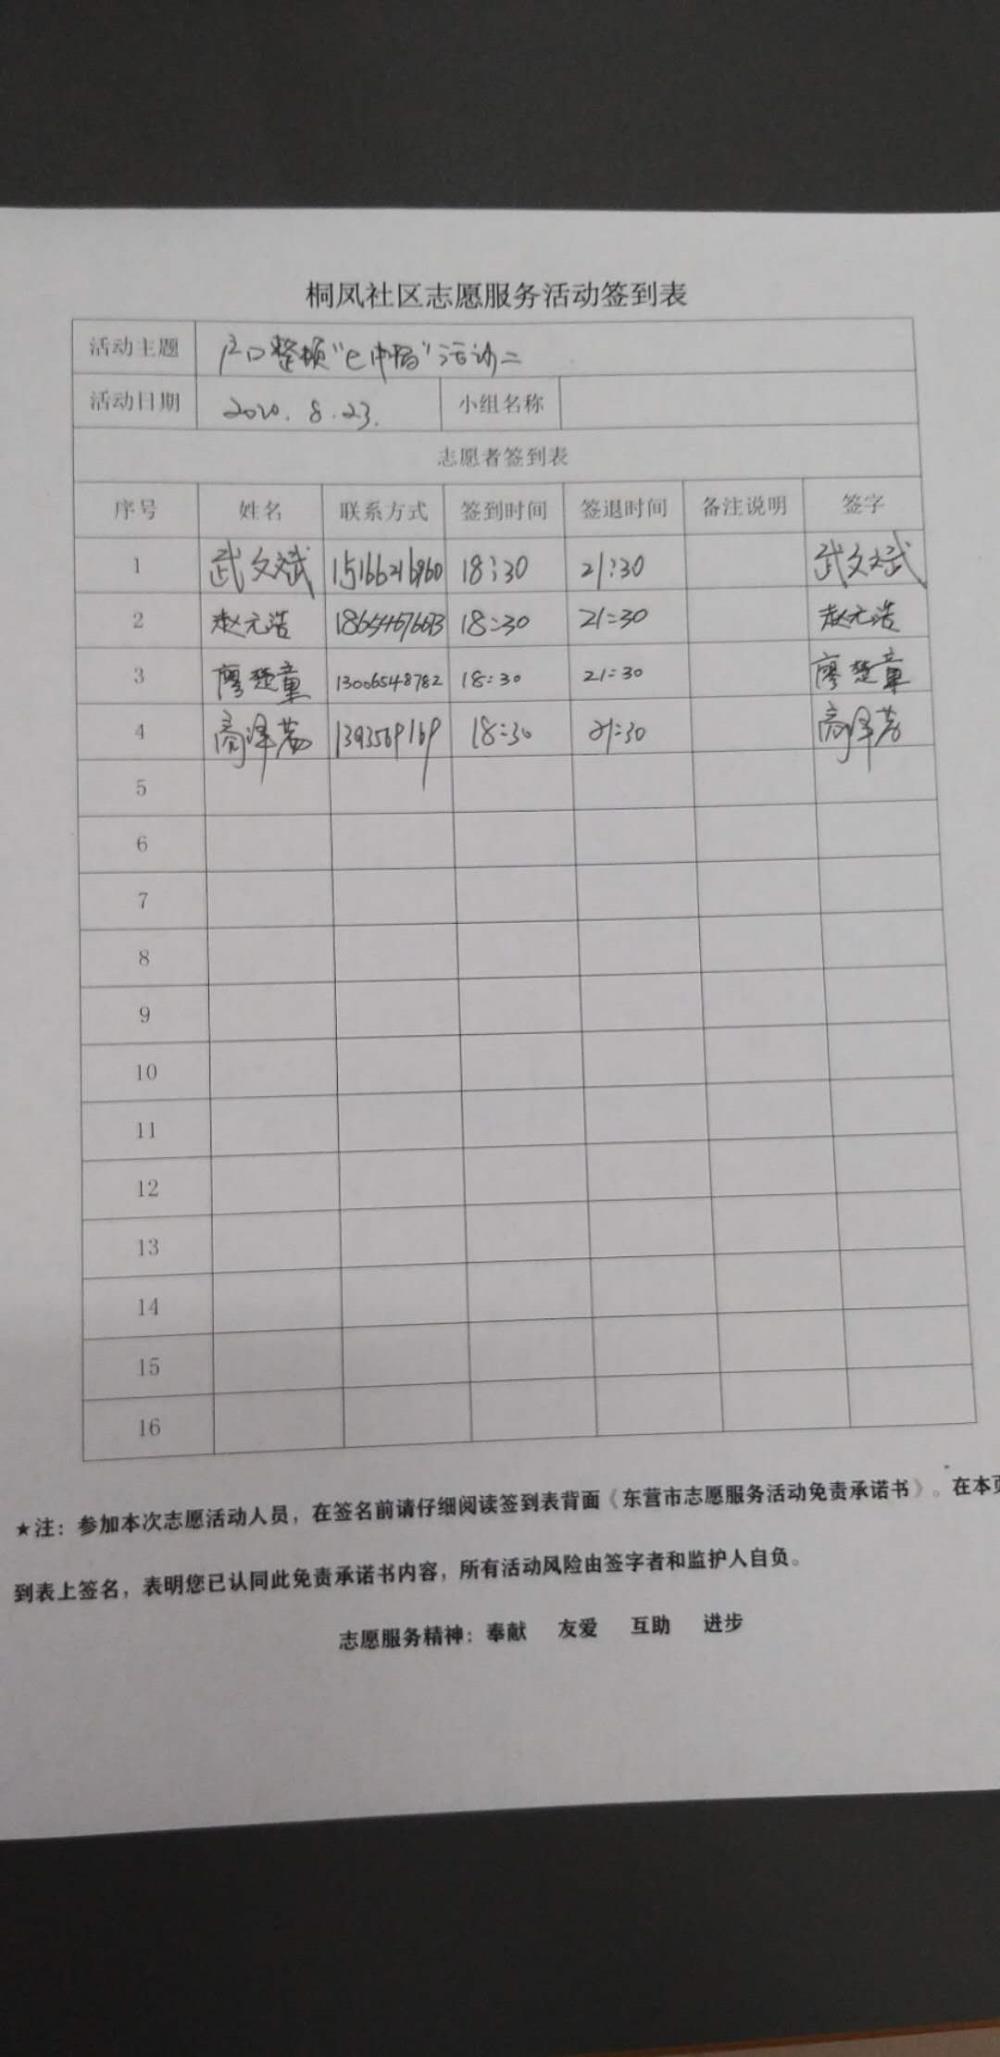 桐凤社区志愿服务活动签到表
活动主题 户口整顿“ ”活动二
活动日期 2020.8.23. 小组名称
志愿者签到表
序号 姓名 联系方式 签到时间 签退时间 备注说明 签字
1 武文斌 18:30 21:30 武文斌
2 赵元浩 18:30 21:30 赵元浩
3 廖楚童 13006548782 18:30 21:30 廖楚童
4 高泽 18:30 21:30 高泽
5
6
7
8
9
10
11
12
13
14
15
16
★注：参加本次志愿活动人员，在签名前请仔细阅读签到表背面《东营市志愿服务活动免责承诺书》。在本页
到表上签名，表明您已认同此免责承诺书内容，所有活动风险由签字者和监护人自负。
志愿服务精神：奉献 友爱 互助 进步